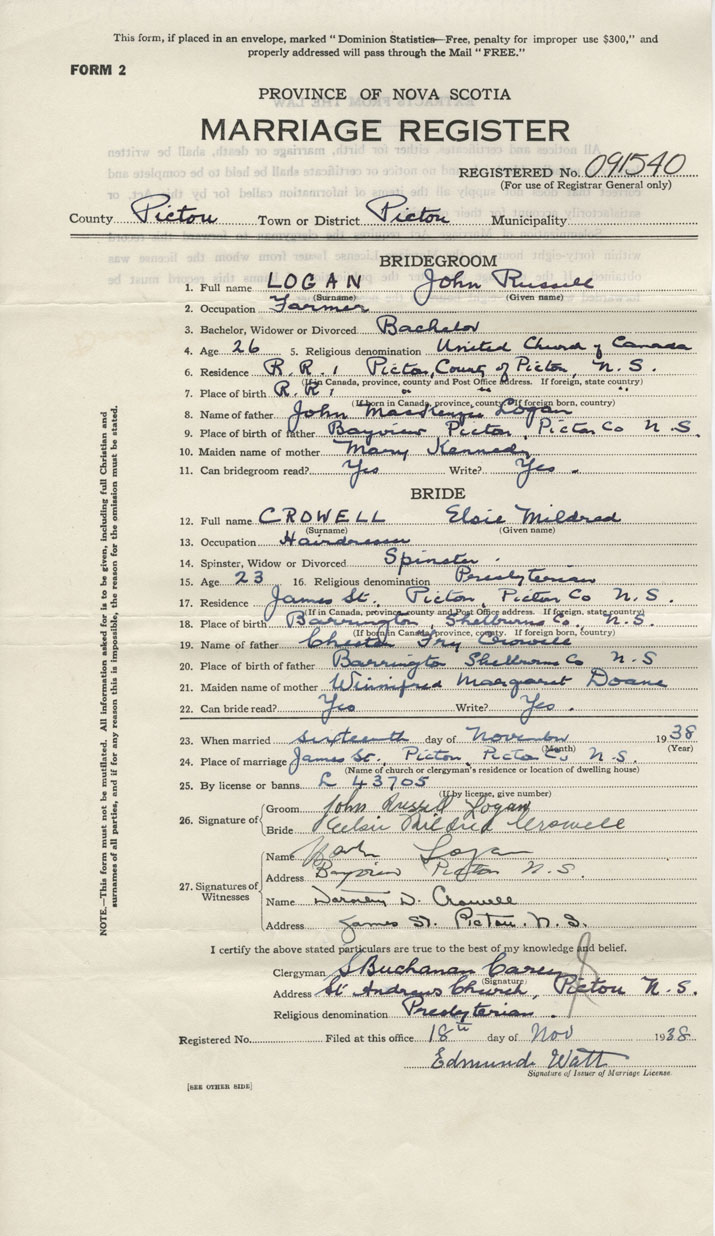 This form, if placed in an envelope, marked "Dominion Statistics—Free, penalty for improper use $300," and
properly addressed will pass through the Mail "FREE."
FORM 2
PROVINCE OF NOVA SCOTIA
MARRIAGE REGISTER
REGISTERED No. 091540
(For use of Registrar General only)
County Pictou Town or District Pictou Municipality
BRIDEGROOM
1. Full name LOGAN John Russell
(Surname) (Given name)
2. Occupation Farmer
3. Bachelor, Widower or Divorced Bachelor
4. Age 26 5. Religious denomination United Church of Canada
6. Residence R.R. 1 Pictou, County of Pictou, N.S.
(If in Canada, province, county and Post Office address. If foreign, state country)
7. Place of birth R.R. 1 " " "
(If born in Canada, province, county. If foreign born, country)
8. Name of father John MacKenzie Logan
9. Place of birth of father Bayview Pictou, Pictou Co N.S.
10. Maiden name of mother Mary Kennedy
11. Can bridegroom read? Yes Write? Yes.
BRIDE
12. Full name CROWELL Elsie Mildred
(Surname) (Given name)
13. Occupation Hairdresser
14. Spinster, Widow or Divorced Spinster.
15. Age 23 16. Religious denomination Presbyterian
17. Residence James St., Pictou, Pictou Co N.S.
(If in Canada, province, county and Post Office address. If foreign, state country)
18. Place of birth Barrington, Shelburne Co., N.S.
(If born in Canada, province, county. If foreign born, country)
19. Name of father Chester Fry Crowell
20. Place of birth of father Barrington Shelburne Co N.S
21. Maiden name of mother Winnifred Margaret Doane
22. Can bride read? Yes Write? Yes.
23. When married sixteenth day of November 1938
(Month) (Year)
24. Place of marriage James St., Pictou, Pictou Co N.S.
(Name of church or clergyman's residence or location of dwelling house)
25. By license or banns L 43705
(If by license, give number)
26. Signature of Groom John Russell Logan
Bride Elsie Mildred Crowell
27. Signatures of Witnesses
Name Logan
Address Bayview Pictou N.S.
Name Dorothy D. Crowell
Address James St. Pictou. N.S.
I certify the above stated particulars are true to the best of my knowledge and belief.
Clergyman S Buchanan Carey
(Signature)
Address St Andrews Church, Pictou N.S.
Religious denomination Presbyterian.
Registered No. Filed at this office 18th day of Nov 1938
Edmund Watt
Signature of Issuer of Marriage License.
[SEE OTHER SIDE]
NOTE.—This form must not be mutilated. All information asked for is to be given, including full Christian and
surnames of all parties, and if for any reason this is impossible, the reason for the omission must be stated.